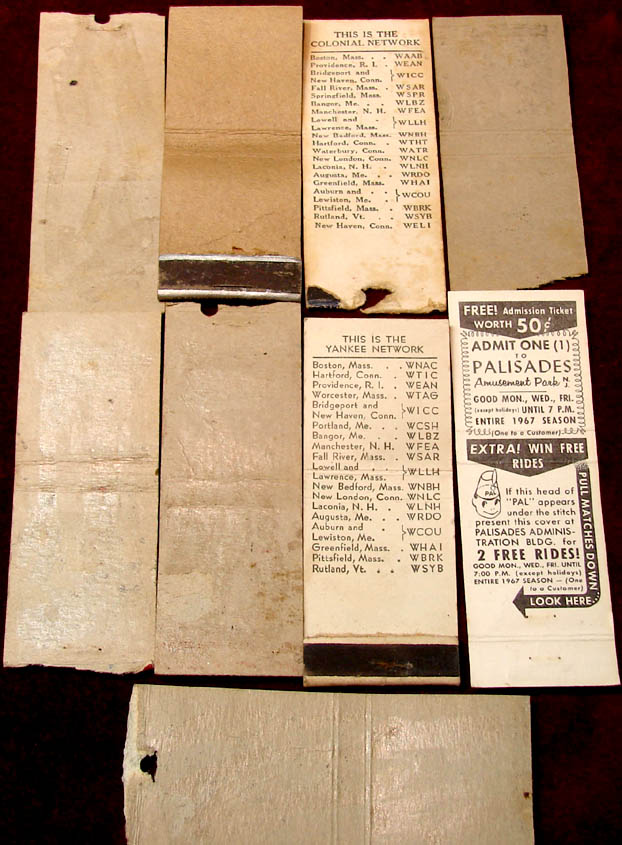 THIS IS THE
COLONIAL NETWORK
Boston, Mass. . . WAAB
Providence, R. I. . WEAN
Bridgeport and
New Haven, Conn. } WICC
Fall River, Mass. WSAR
Springfield, Mass. WSPR
Bangor, Me. . . WLBZ
Manchester, N. H. WFEA
Lowell and . .
Lawrence, Mass. } WLLH
New Bedford, Mass. WNBH
Hartford, Conn. . WTHT
Waterbury, Conn. WATR
New London, Conn. WNLC
Laconia, N. H. . . WLNH
Augusta, Me. . . WRDO
Greenfield, Mass. WHAI
Auburn and . .
Lewiston, Me. . } WCOU
Pittsfield, Mass. . WBRK
Rutland, Vt. . . WSYB
New Haven, Conn. WELI
THIS IS THE
YANKEE NETWORK
Boston, Mass. . . WNAC
Hartford, Conn. . WTIC
Providence, R. I. . WEAN
Worcester, Mass. . WTAG
Bridgeport and
New Haven, Conn. } WICC
Portland, Me. . . WCSH
Bangor, Me. . . WLBZ
Manchester, N. H. WFEA
Fall River, Mass. . WSAR
Lowell and . .
Lawrence, Mass. } WLLH
New Bedford, Mass. WNBH
New London, Conn. WNLC
Laconia, N. H. . WLNH
Augusta, Me. . . WRDO
Auburn and . .
Lewiston, Me. . } WCOU
Greenfield, Mass. . WHAI
Pittsfield, Mass. . WBRK
Rutland, Vt. . . WSYB
FREE! Admission Ticket
WORTH 50¢
ADMIT ONE (1)
TO
PALISADES
Amusement Park N.J.
GOOD MON., WED., FRI.
(except holidays) UNTIL 7 P.M.
ENTIRE 1967 SEASON
(One to a Customer)
EXTRA! WIN FREE
RIDES
PAL
If this head of
"PAL" appears
under the stitch
present this cover at
PALISADES ADMINIS-
TRATION BLDG. for
2 FREE RIDES!
GOOD MON., WED., FRI. UNTIL
7:00 P.M. (except holidays)
ENTIRE 1967 SEASON — (One
to a Customer)
PULL MATCHES DOWN
LOOK HERE